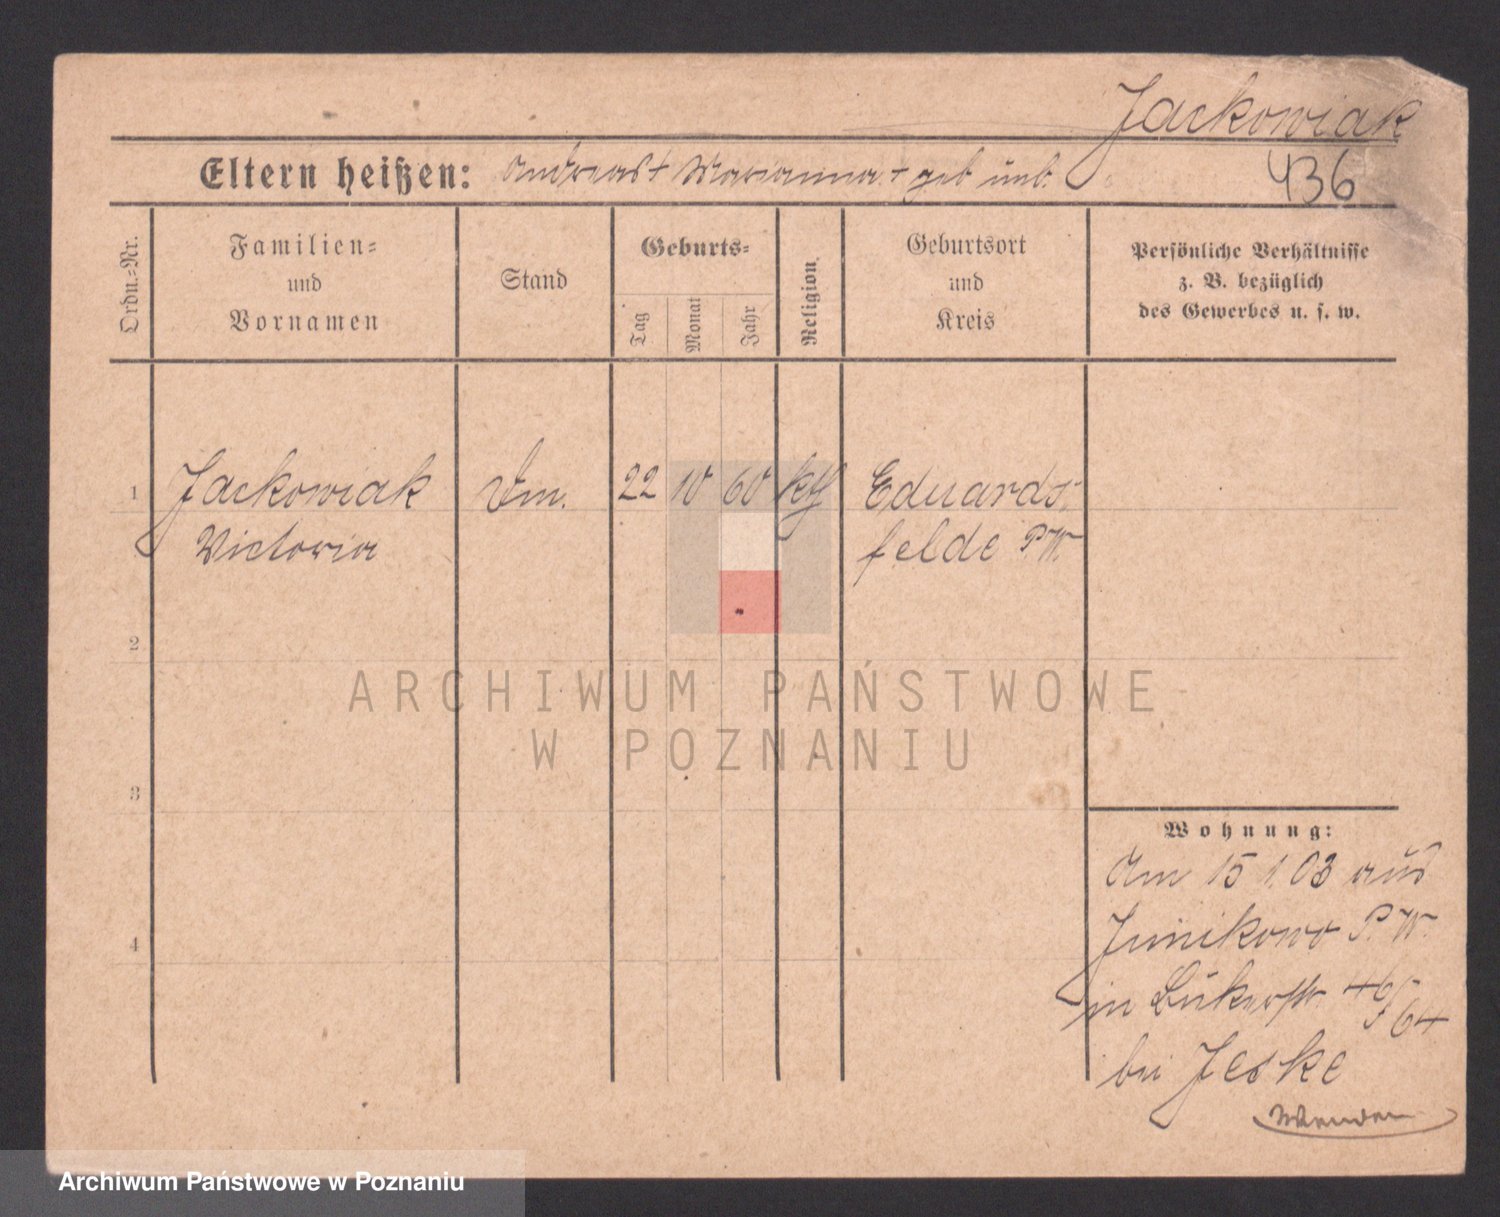 Jackowiak
Eltern heißen: Andreas + Marianna + geb unb.
436
Ordn.=Nr.
Familien=
und
Vornamen
Stand
Geburts=
Tag
Monat
Jahr
Religion.
Geburtsort
und
Kreis
Persönliche Verhältnisse
z. B. bezüglich
des Gewerbes u. s. w.
1 Jackowiak 22 10 60 kth Eduards-
Victoria felde P.W.
2
3
4
ARCHIWUM PAŃSTWOWE
W POZNANIU
Wohnung:
Am 15 1. 03 aus
Junikowo P. W.
in
bei Jeske
Wenden
Archiwum Państwowe w Poznaniu